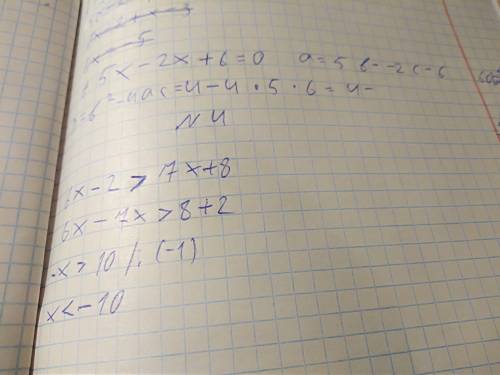 5x-2x+6=0 a=5 b--2c-6
=b²-4ac=4-4•5•6=4-
N4
x-2>7x+8
6x-7x>8+2
-x>10/:(-1)
x<-10